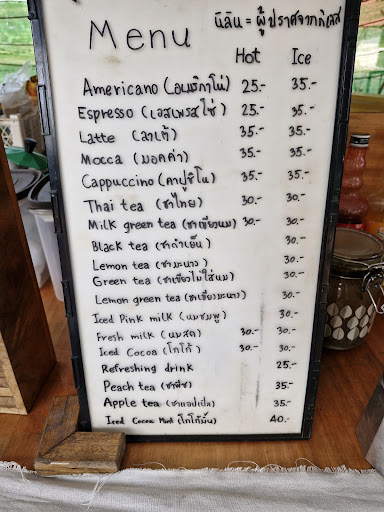 นิลิน = ผู้ปราศจากกิเลส
Menu
Hot Ice
Americano (อเมริกาโน่) 25.- 35.-
Espresso (เอสเพรสโซ่) 25.- 35.-
Latte (ลาเต้) 35.- 35.-
Mocca (มอคค่า) 35.- 35.-
Cappuccino (คาปูชิโน) 35.- 35.-
Thai tea (ชาไทย) 30.- 30.-
Milk green tea (ชาเขียวนม) 30.- 30.-
Black tea (ชาดำเย็น) 30.-
Lemon tea (ชามะนาว) 30.-
Green tea (ชาเขียวไม่ใส่นม) 30.-
Lemon green tea (ชาเขียวมะนาว) 30.-
Iced Pink milk (นมชมพู) 30.-
Fresh milk (นมสด) 30.- 30.-
Iced Cocoa (โกโก้) 30.- 30.-
Refreshing drink 25.-
Peach tea (ชาพีช) 35.-
Apple tea (ชาแอปเปิ้ล) 35.-
Iced Cocoa Mint (โกโก้มิ้น) 40.-